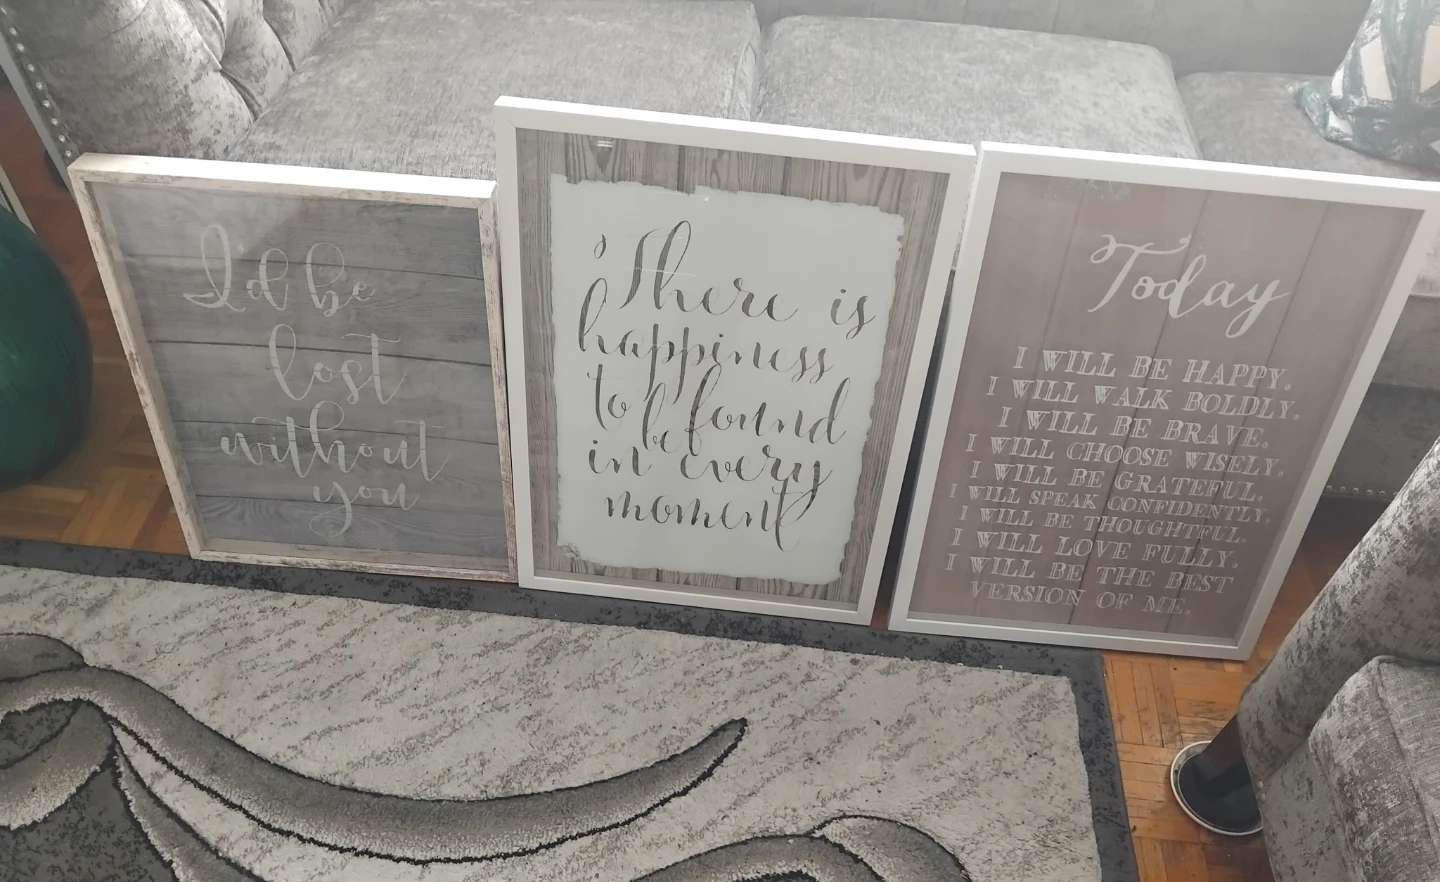 I'd be
lost
without
you
There is
happiness
to be found
in every
moment
Today
I WILL BE HAPPY.
I WILL WALK BOLDLY.
I WILL BE BRAVE.
I WILL CHOOSE WISELY.
I WILL BE GRATEFUL.
I WILL SPEAK CONFIDENTLY.
I WILL BE THOUGHTFUL.
I WILL LOVE FULLY.
I WILL BE THE BEST
VERSION OF ME.